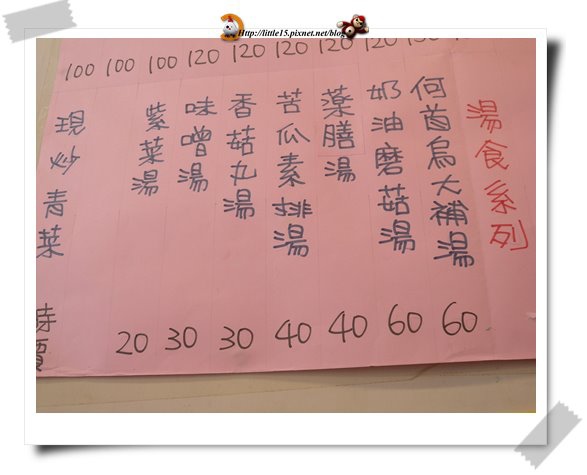 Http://little15.pixnet.net/blog
100 100 100 120 120 120 120 120
湯食系列
何首烏大補湯 60
奶油磨菇湯 60
藥膳湯 40
苦瓜素排湯 40
香菇丸湯 30
味噌湯 30
紫菜湯 20
現炒青菜 時價